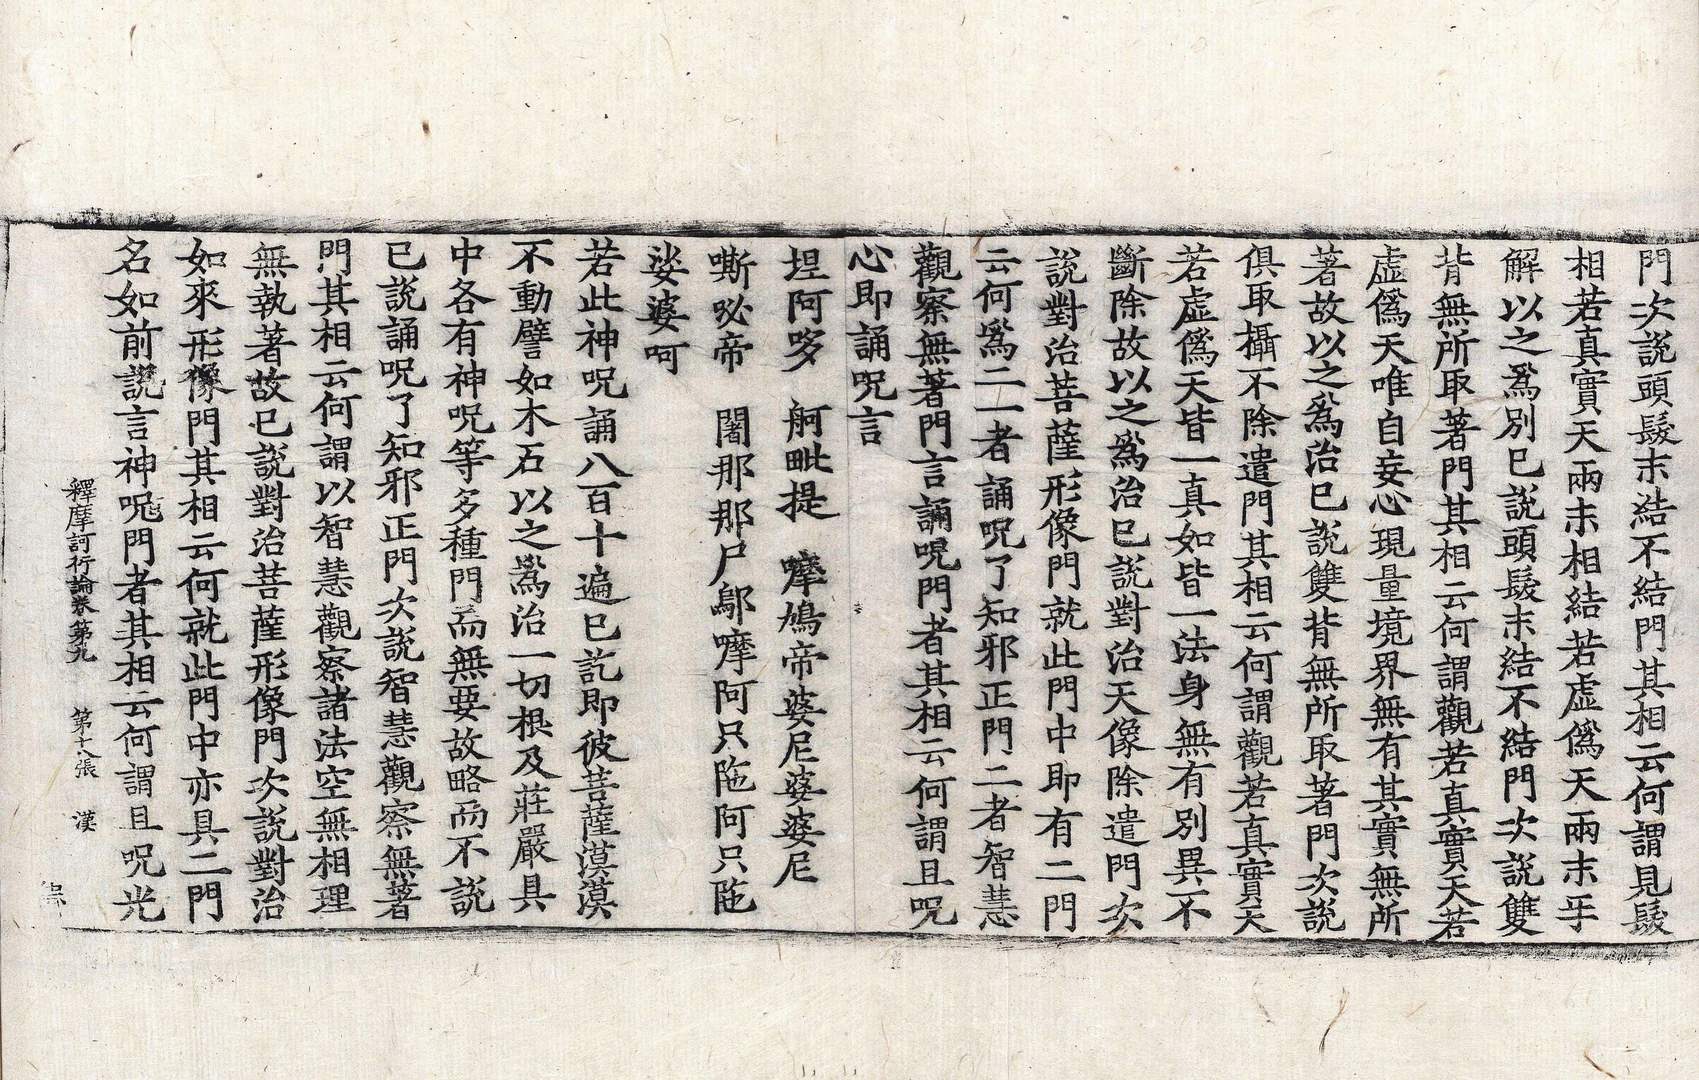 門次說頭髮末結不結門其相云何謂見髮
相若真實天兩末相結若虛僞天兩末乎
解以之爲別已說頭髮末結不結門次說雙
背無所取著門其相云何謂觀若真實天若
虛僞天唯自妄心現量境界無有其實無所
著故以之爲治已說雙背無所取著門次說
俱取攝不除遣門其相云何謂觀若真實天
若虛僞天皆一真如皆一法身無有別異不
斷除故以之爲治已說對治天像除遣門次
說對治菩薩形像門就此門中即有二門
云何爲二一者誦呪了知邪正門二者智慧
觀察無著門言誦呪門者其相云何謂且呪
心即誦呪言
坦阿哆　舸毗提　嚤鳩帝婆尼婆婆尼
嘶咇帝　闍那那尸鄔嚤阿只陁阿只陁
娑婆呵
若此神呪誦八百十遍已訖即彼菩薩漠漠
不動譬如木石以之爲治一切根及莊嚴具
中各有神呪等多種門而無要故略而不說
已說誦呪了知邪正門次說智慧觀察無著
門其相云何謂以智慧觀察諸法空無相理
無執著故已說對治菩薩形像門次說對治
如來形像門其相云何就此門中亦具二門
名如前說言神呪門者其相云何謂且呪光
釋摩訶衍論卷第九　第十八張　漢